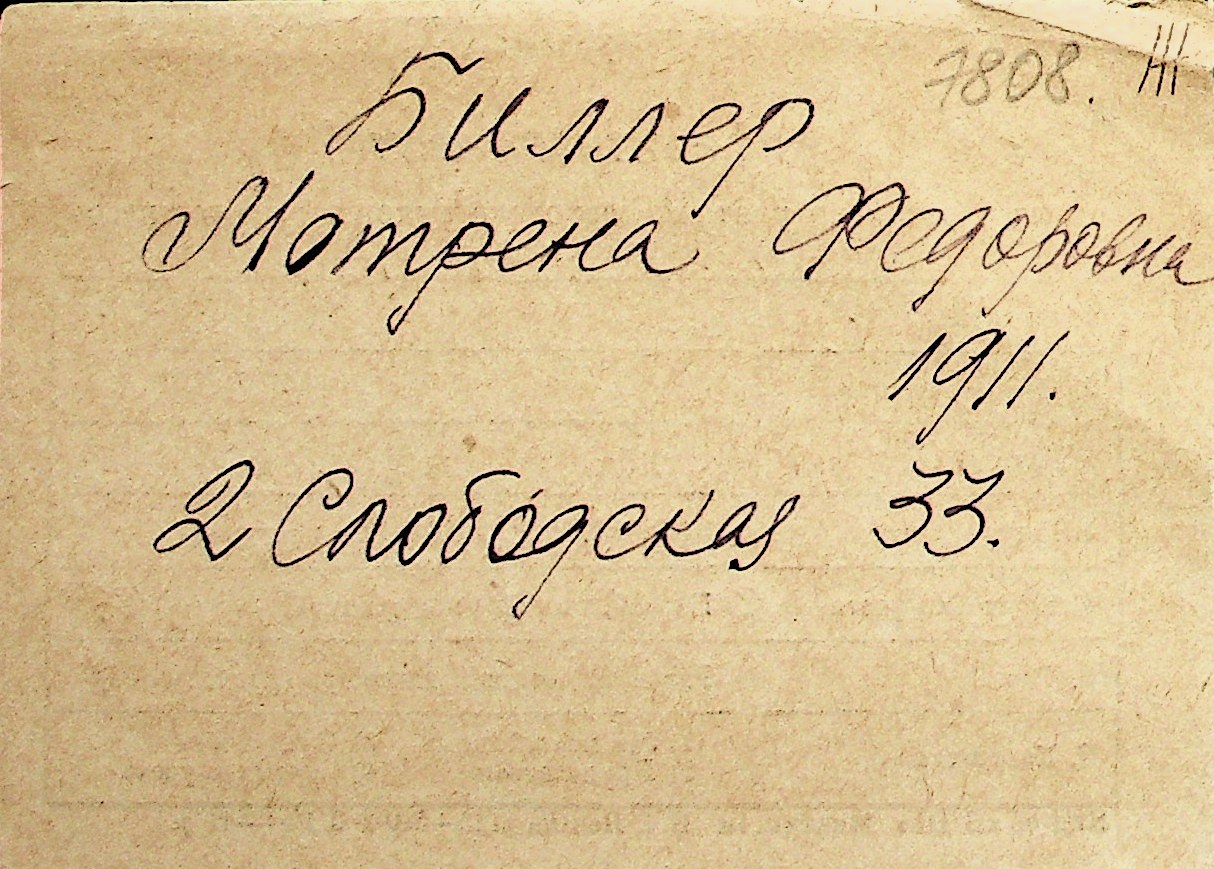 7808.
Биллер
Мотрена Федоровна
1911.
2 Слободская 33.